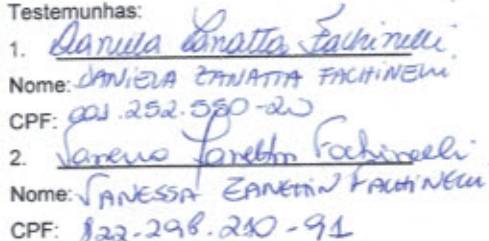 Testemunhas:
1. Daniela Zanatta Fachinelli
Nome: DANIELA ZANATTA FACHINELLI
CPF: 001.252.550-20
2. Vanessa Zanettin Fachinelli
Nome: VANESSA ZANETTIN FACHINELLI
CPF: 822-298.210-91